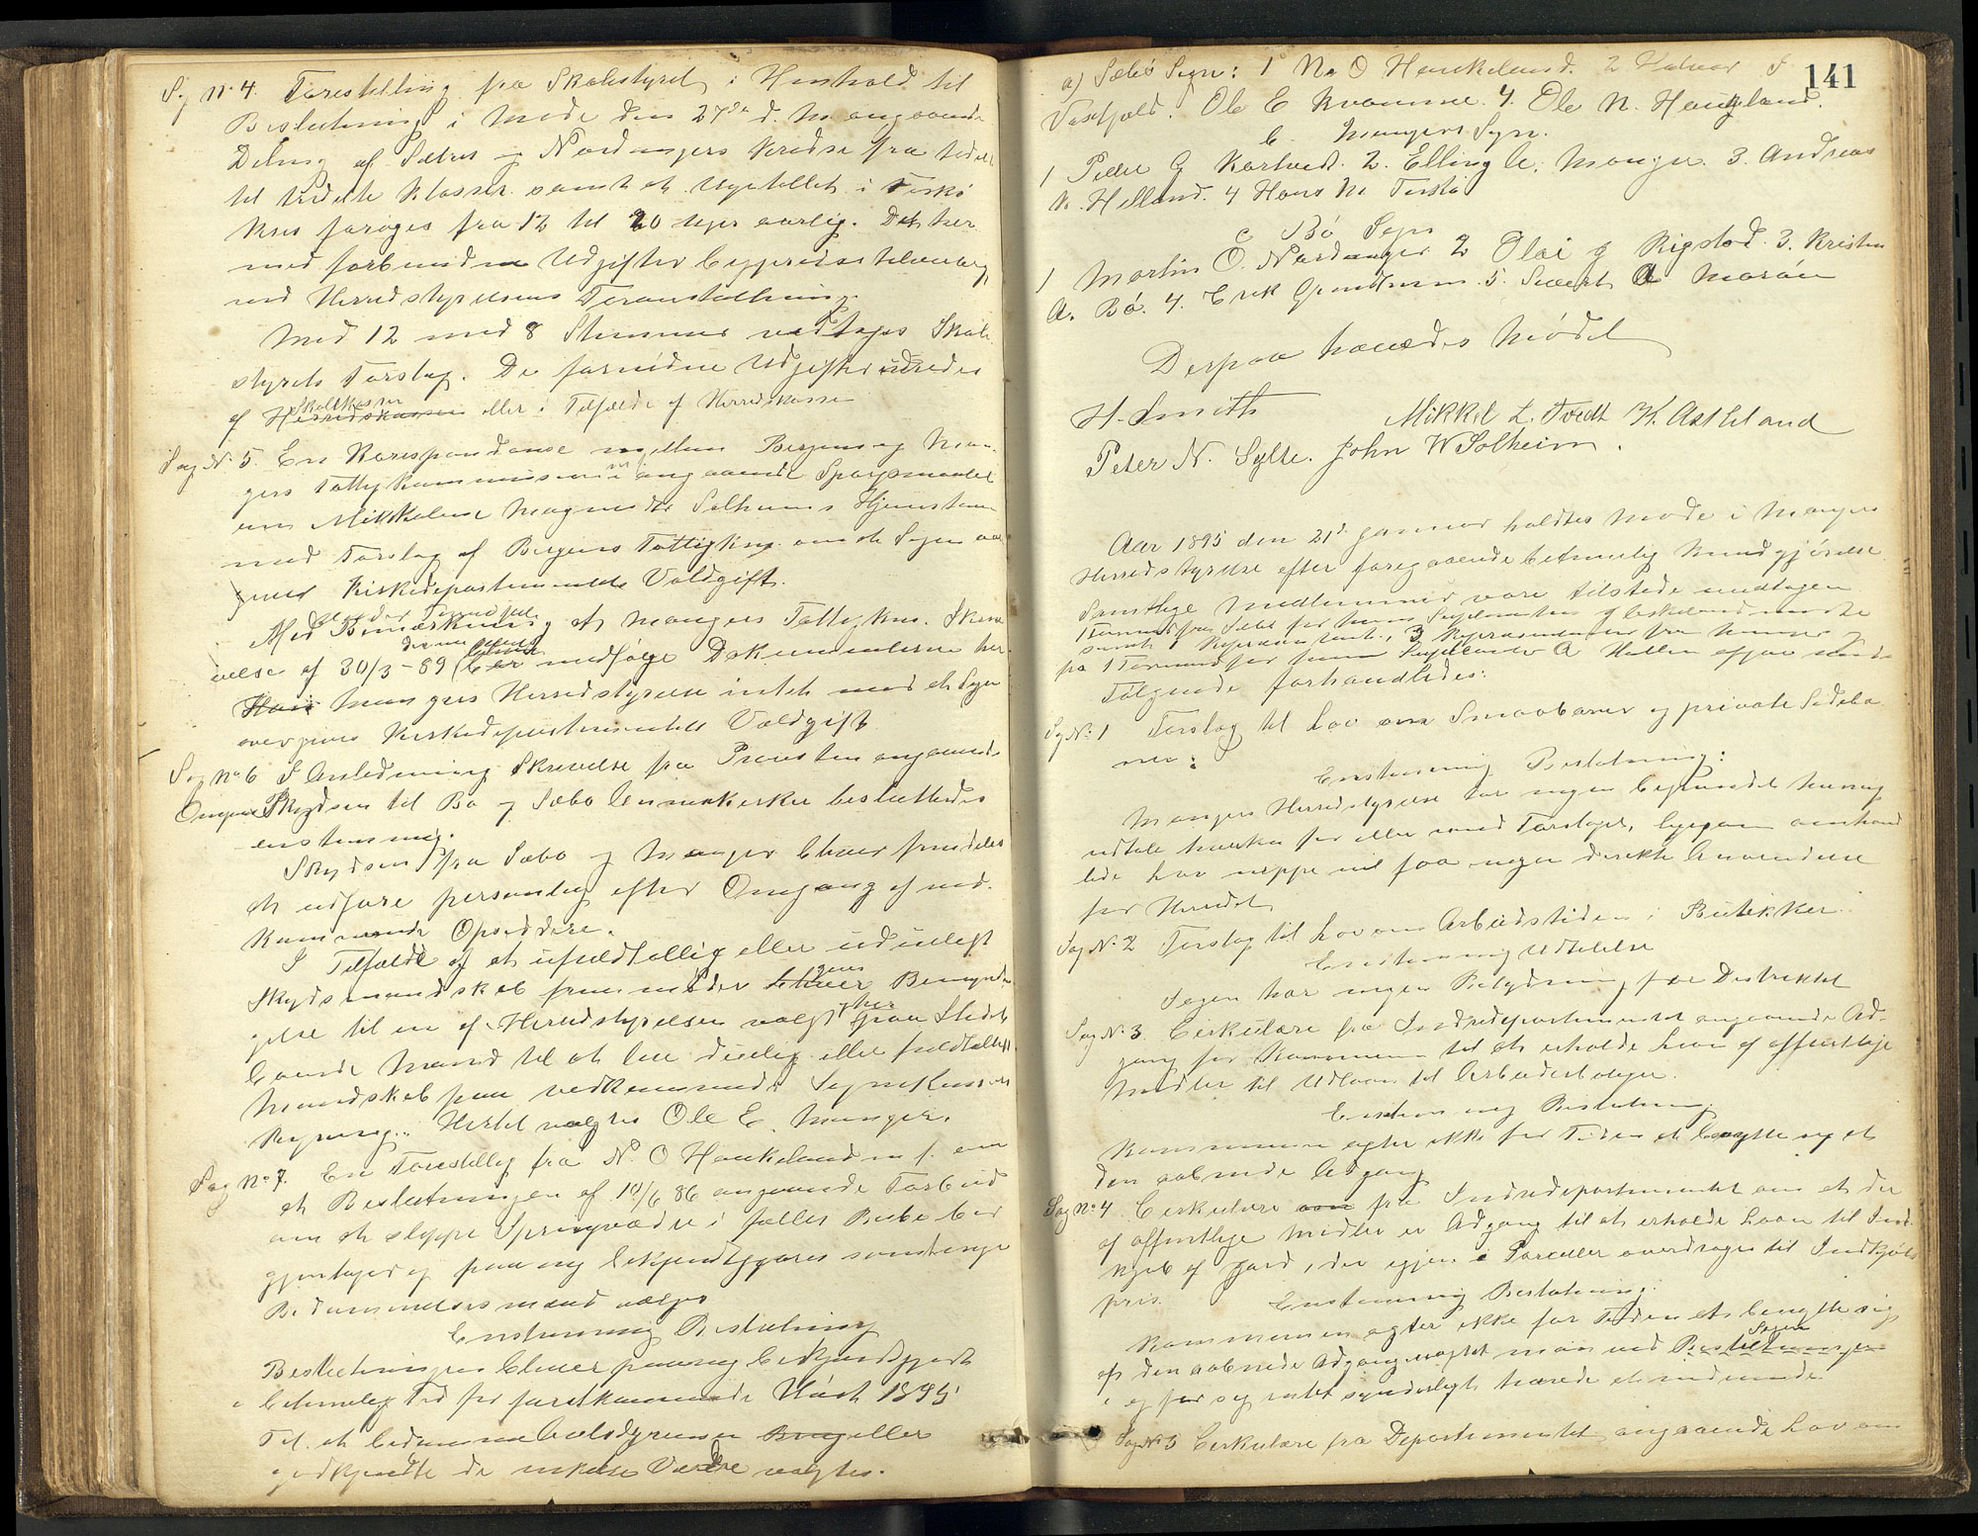 Sag No 4. Forestilling fra Skolestyret i Henhold til
Beslutning i Møde den 27de d. M. angaaende
Deling af Sætres og Nordangers Kredse fra todelt
til tredelte Klasser samt at Ugetallet i Toskø
Kres forøges fra 12 til 20 Uger aarlig. De her
med forbundne Udgifter
ved Herredstyrelsens Foranstaltning.
Med 12 mod 8 Stemmer vedtages Skole
styrets Forslag. De fornødne Udgifter udredes
af Skolekassen eller i Tilfælde af Herredskassen
Sag No 5. En Korrespondanse mellem Bergens og Man-
gers Fattigkommission angaaende Spørgsmaalet
om Mikkeline Magnesdtr Solheims Hjemstavn
med Forslag af Bergens Fattigkom. om at Sagen
gives Kirkedepartementets Voldgift.
Med Bemærkning at Mangers Fattigkom. Skri-
velse af 30/3-89 medfølge Dokumenterne har
Mangers Herredstyrelse intet mod at Sagen
overgives Kirkedepartementets Voldgift
Sag No 6 I Anledning Skrivelse fra Provsten angaaende
Skydsen til Bø og Sæbø Annexkirker besluttedes
enstemmig.
Skydsen fra Sæbø og Manger bliver fremdeles
at udføre personlig efter Omgang af ved-
kommende Opsiddere.
I Tilfælde af at ufuldtallig eller udueligt
Skydsmandskab fremmøder gives Bemyndi-
gelse til en af Herredstyrelsen valgt her paa Stedet
boende Mand til at leie duelig eller fuldtalligt
Mandskab paa vedkommende Sognekasses
Regning. Hertil valgtes Ole E. Manger.
Sag No 7. En Forestillig fra N. O Haukeland m. f. om
at Beslutningen af 10/6 86 angaaende Forbud
om at slippe Springvædre i fælles Beite bør
gjentages og paa ny bekjendtgjøres samt
Bedømmelsesmænd vælges
Enstemmig Beslutning
Beslutningen bliver paany bekjendtgjort
i betimelig Tid før førstkommende Høst 1895
Til at bedømme eller
godkjendte de Vædre valgtes.
a) Sæbø Sogn: 1 Ns O Haukeland. 2 Halvor S
Vestfjeld. Ole E Kvamme. 4. Ole N. Haugland.
b. Mangers Sogn.
1 Peder G Kartveit. 2. Elling A. Manger. 3. Andreas
N. Helland. 4 Hans M. Toskø
c Bø Sogn
1 Martin O. Nordanger 2 Olai J Rigstad. 3. Kristen
A. Bø. 4. Erik Grindheim. 5. Sivert A Marøen
Derpaa hævedes Mødet
H. Smith Mikkel L. Tvedt K. Askeland
Peter N. Sylte. John W Solheim.
Aar 1895 den 21de Januar holdtes Møde i Mangers
Herredstyrelse efter foregaaende betimelig Kundgjørelse
Samtlige Medlemmer vare tilstede undtagen
1 Formand fra Sæbø for hvem
samt 1 Repræsentant, 3 Repræsentanter fra Manger
for 1 Formand for hvem A Helland
Følgende forhandledes:
Sag No 1 Forslag til Lov om Smaabaner og private Sideba
ner:
Enstemmig Beslutning:
Mangers Herredstyrelse har ingen begrundet Mening
udtale hverken for eller imod Forslaget, ligesom omhand
lede Lov neppe vil faa nogen direkte Anvendelse
for Herredet
Sag No 2 Forslag til Lov om Arbeidstiden i Butikker.
Enstemmig Udtalelse
Sagen har ingen Betydning for Distriktet
Sag No 3 Cirkulære fra Indredepartementet angaaende Ad-
gang for Kommunen til at erholde Laan af offentlige
Midler til Udlaan til Arbeiderboliger.
Enstemmig Beslutning
Kommunen agter ikke for Tiden at benytte sig af
den aabnede Adgang
Sag No 4. Cirkulære fra Indredepartementet om at der
af offentlige Midler er Adgang til at erholde Laan til Ind-
kjøb af Jord, der igjen i Parceller overdrages til Indkjøbs
pris.
Enstemmig Beslutning.
Kommunen agter ikke for Tiden at benytte sig
af den aabnede Adgang uagtet man ved Sagen
i og for sig intet synderligt havde at indvende
Sag No 5 Cirkulære fra Departementet angaaende Lov om
141